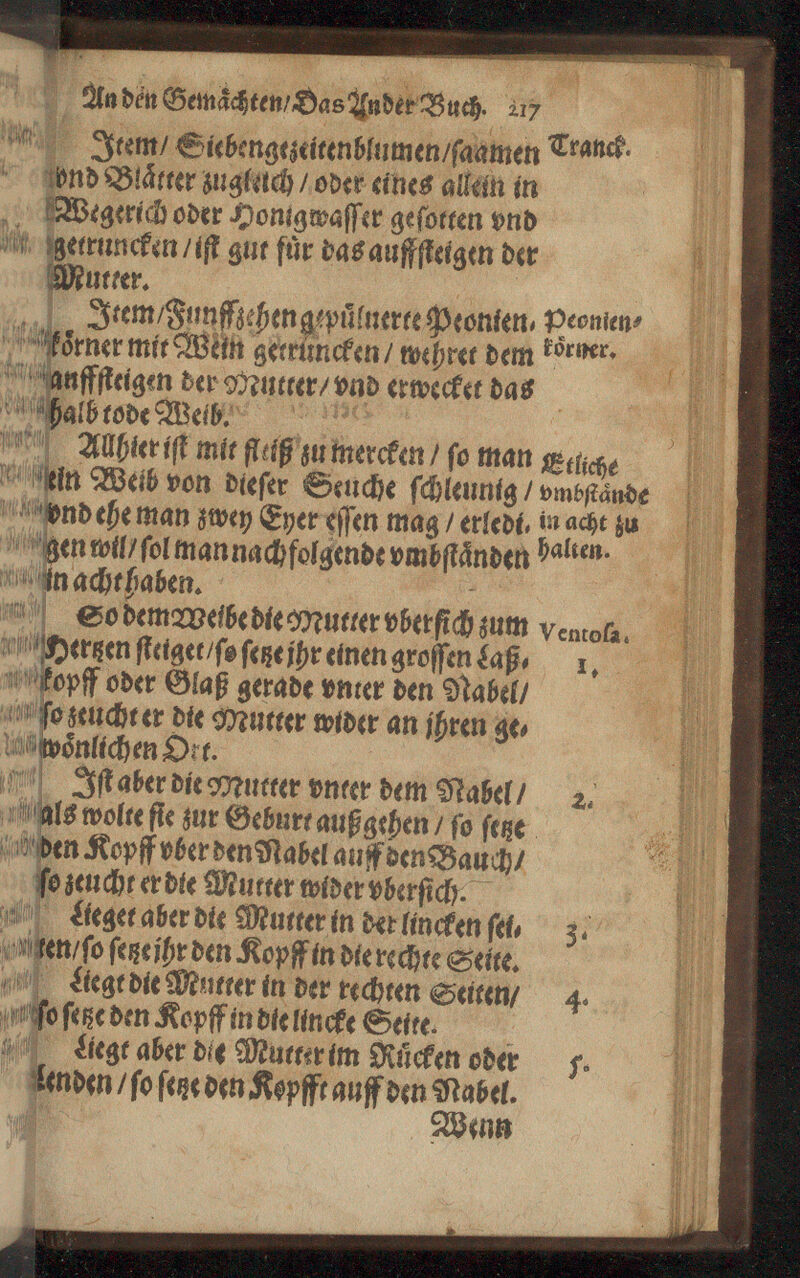 An den Gemaͤchten/ Das Ander Buch. 217
Item/ Siebengezeitenblumen/ ſaamen Tranck.
vnd Blaͤtter zugleich / oder eines allein in
Wegerich oder Honigwaſſer geſotten vnd
getruncken / iſt gut fuͤr das auffſteigen der
Mutter.
Item/ Funffzehen gepuͤlnerte Peonien⸗ Peonien⸗
koͤrner mit Wein getruncken / wehret dem koͤrner.
auffſteigen der Mutter/ vnd erwecket das
halb tode Weib.
Allhier iſt mit fleiß zu mercken / ſo man Etliche
ein Weib von dieſer Seuche ſchleunig / vmbſtaͤnde
vnd ehe man zwey Eyer eſſen mag / erledi⸗ in acht zu
gen wil/ ſol man nachfolgende vmbſtaͤnden halten.
in acht haben.
So dem Weibe die Mutter vberſich zum Ventoſa.
Hertzen ſteiget/ ſo ſetze jhr einen groſſen Laß⸗ 1.
kopff oder Glaß gerade vnter den Nabel/
ſo zeucht er die Mutter wider an jhren ge⸗
woͤnlichen Ort.
Iſt aber die Mutter vnter dem Nabel / 2.
als wolte ſie zur Geburt außgehen / ſo ſetze
den Kopff vber den Nabel auff den Bauch/
ſo zeucht er die Mutter wider vberſich.
Lieget aber die Mutter in der lincken ſei⸗ 3.
ten/ ſo ſetze jhr den Kopff in die rechte Seite.
Liegt die Mutter in der rechten Seiten/ 4.
ſo ſetze den Kopff in die lincke Seite.
Liegt aber die Mutter im Ruͤcken oder 5.
Lenden / ſo ſetze den Kopfft auff den Nabel.
Wenn